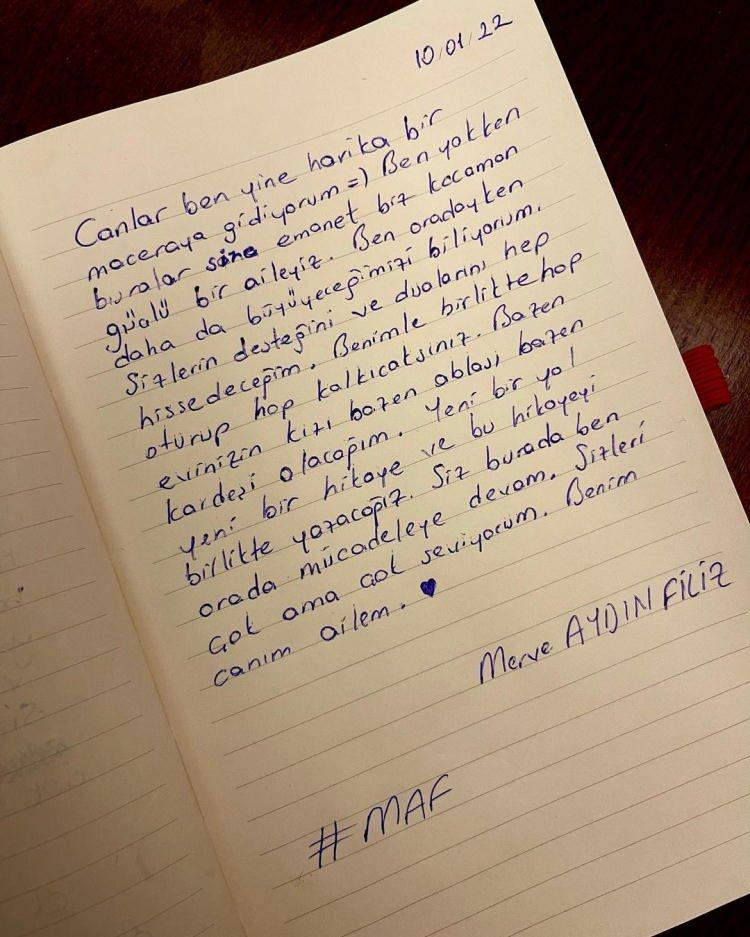 10/01/22
Canlar ben yine harika bir
maceraya gidiyorum =) Ben yokken
buralar size emanet biz kocaman
güçlü bir aileyiz. Ben oradayken
daha da büyüyeceğimizi biliyorum.
Sizlerin desteğini ve dualarını hep
hissedeceğim. Benimle birlikte hop
oturup hop kalkıcaksınız. Bazen
evinizin kızı bazen ablası bazen
kardeşi olacağım. Yeni bir yol
yeni bir hikaye ve bu hikayeyi
birlikte yazacağız. Siz burada ben
orada mücadeleye devam. Sizleri
çok ama çok seviyorum. Benim
canım ailem. ♥
Merve AYDIN FİLİZ
#MAF